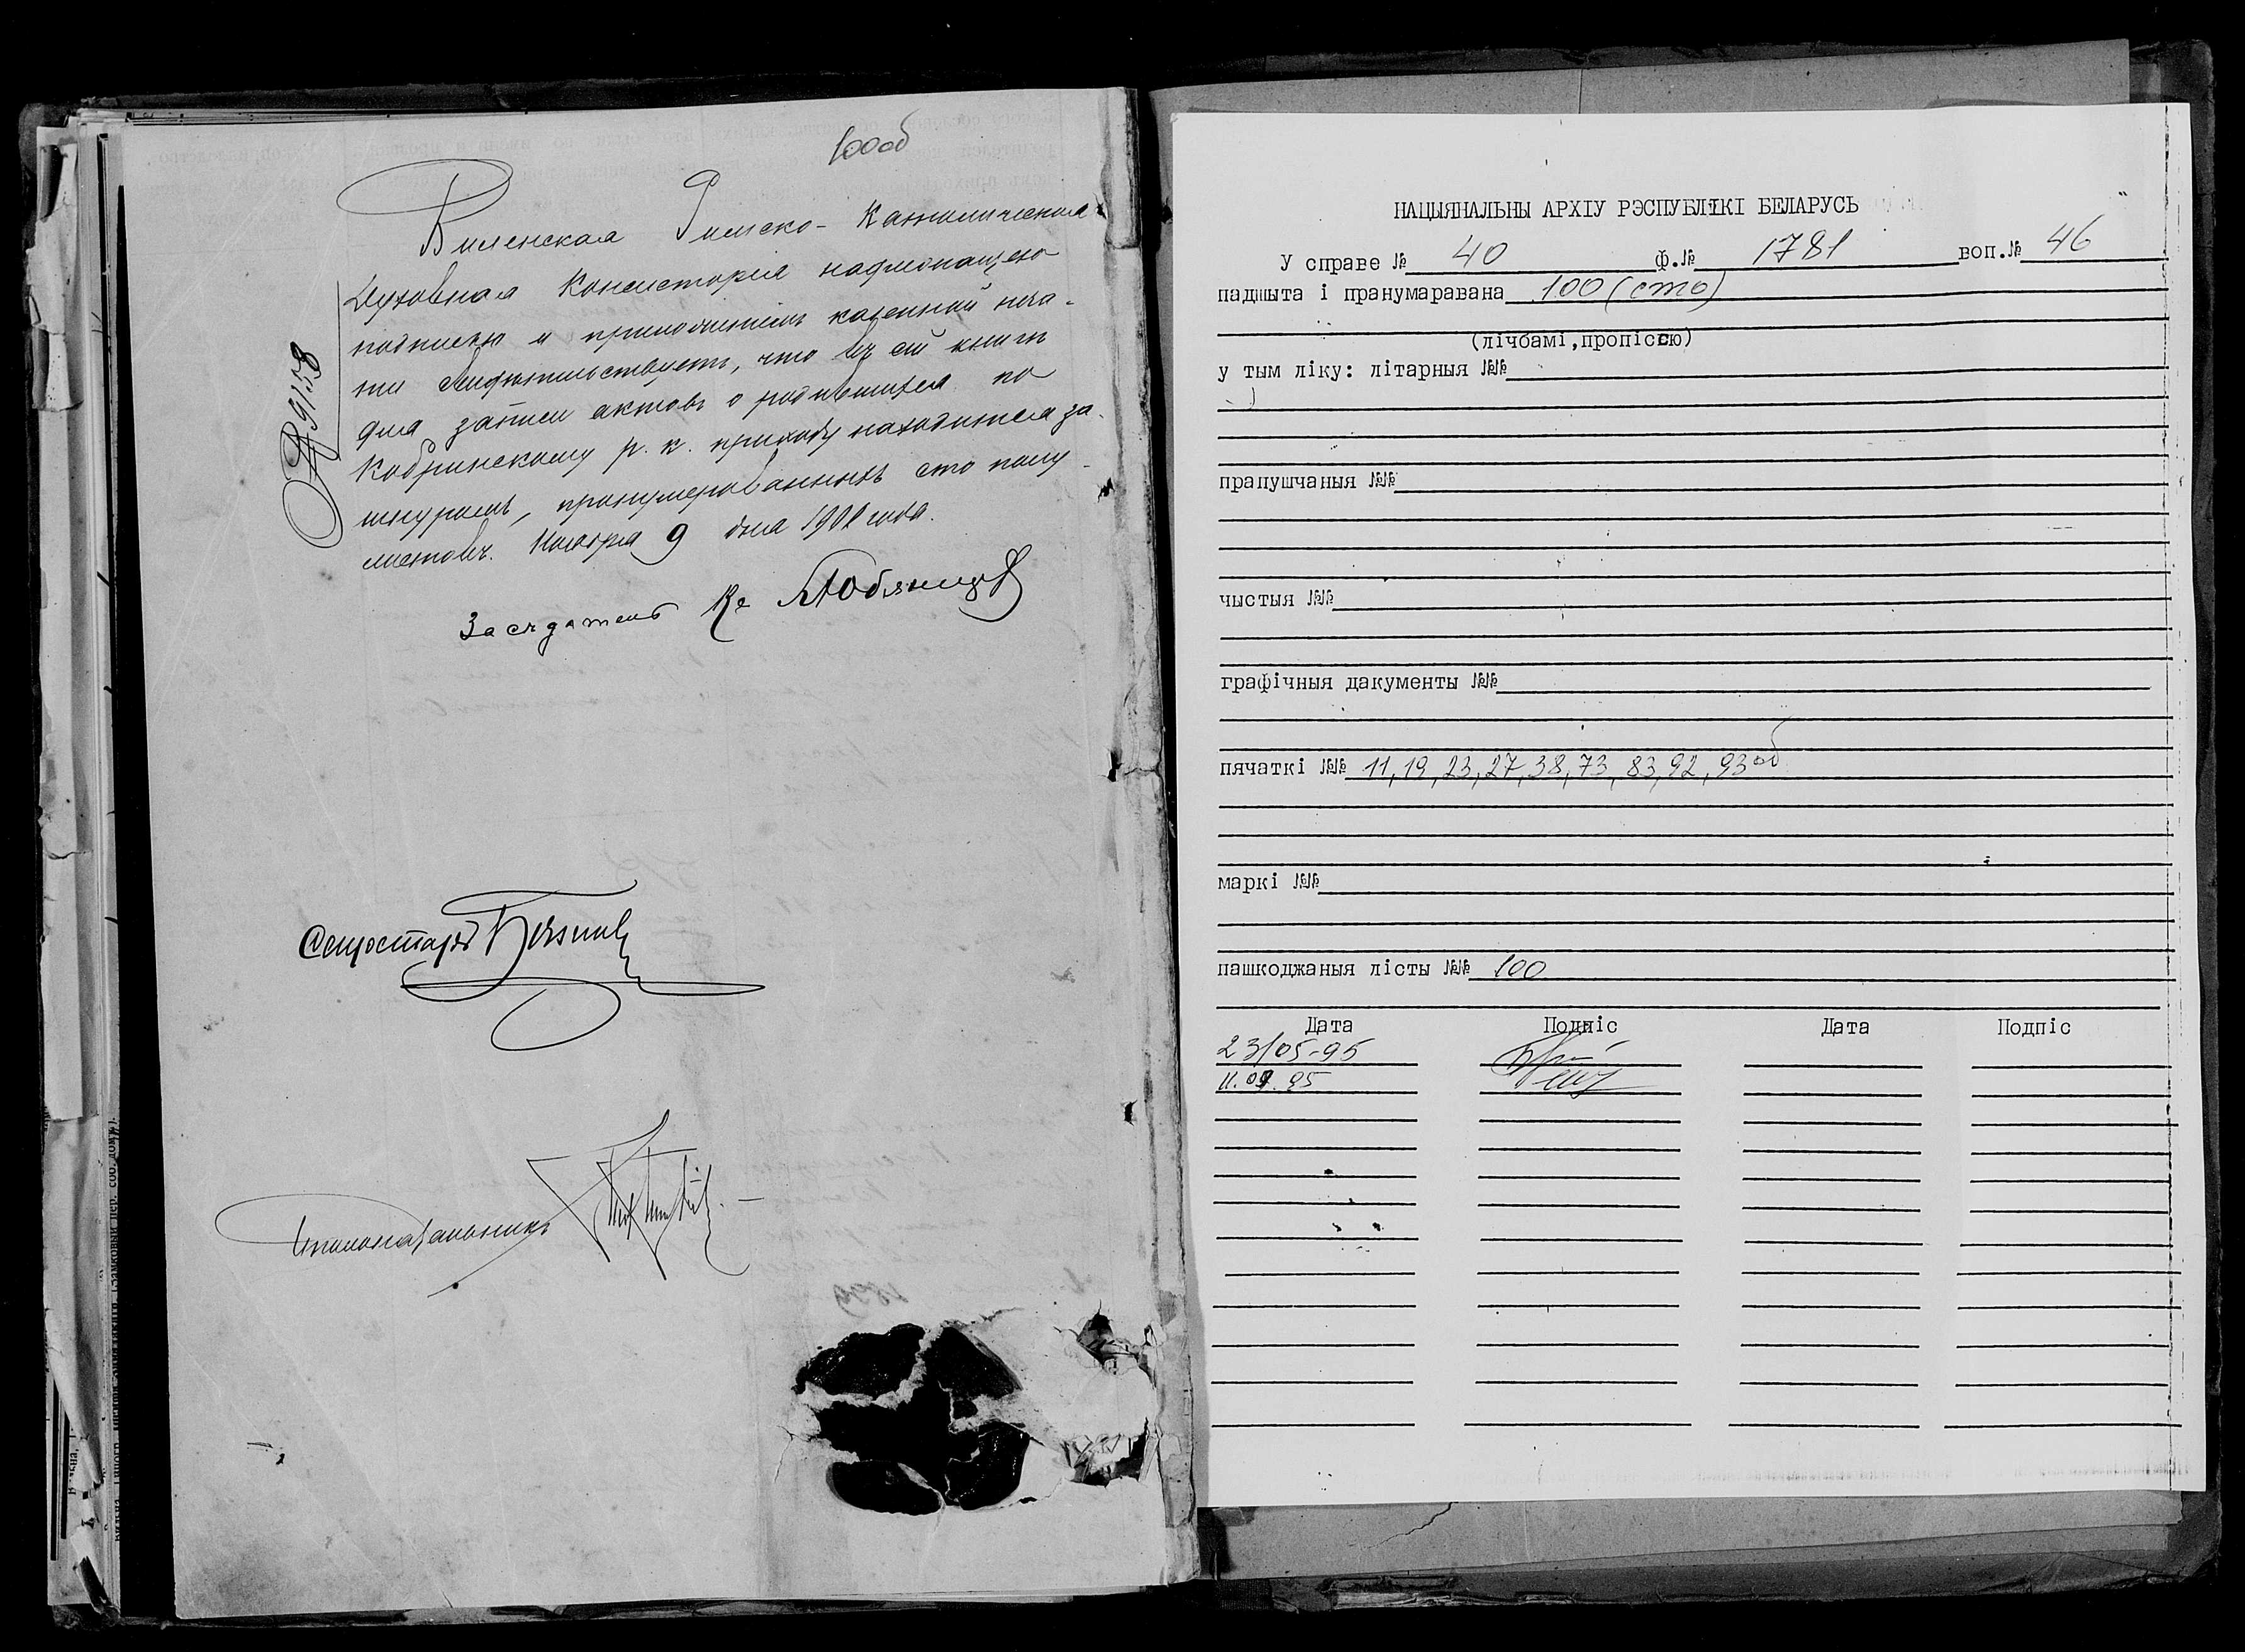 100об
Виленская Римско-Католическая
Духовная Консисторія надлежащею
подписью и приложеніемъ казенной печа-
ти свидѣтельствуетъ, что въ сей книгѣ
для записи актовъ о родившихся по
Кобринскому р. к. приходу находится за-
шнуромъ, пронумерованныхъ сто полу-
листовъ. Ноября 9 дня 1901 года.
№ 9158
Засѣдатель Кс
Секретарь
Столоначальникъ
НАЦЫЯНАЛЬНЫ АРХІУ РЭСПУБЛІКІ БЕЛАРУСЬ
У справе № 40 ф.№ 1781 воп.№ 46
падшыта і пранумаравана 100 (сто)
(лічбамі,пропіссю)
у тым ліку: літарныя №№
прапушчаныя №№
чыстыя №№
графічныя дакументы №№
пячаткі №№ 11, 19, 23, 27, 38, 73, 83, 92, 93об
маркі №№
пашкоджаныя лісты №№ 100
Дата Подпіс Дата Подпіс
23/05-95
11.09.95